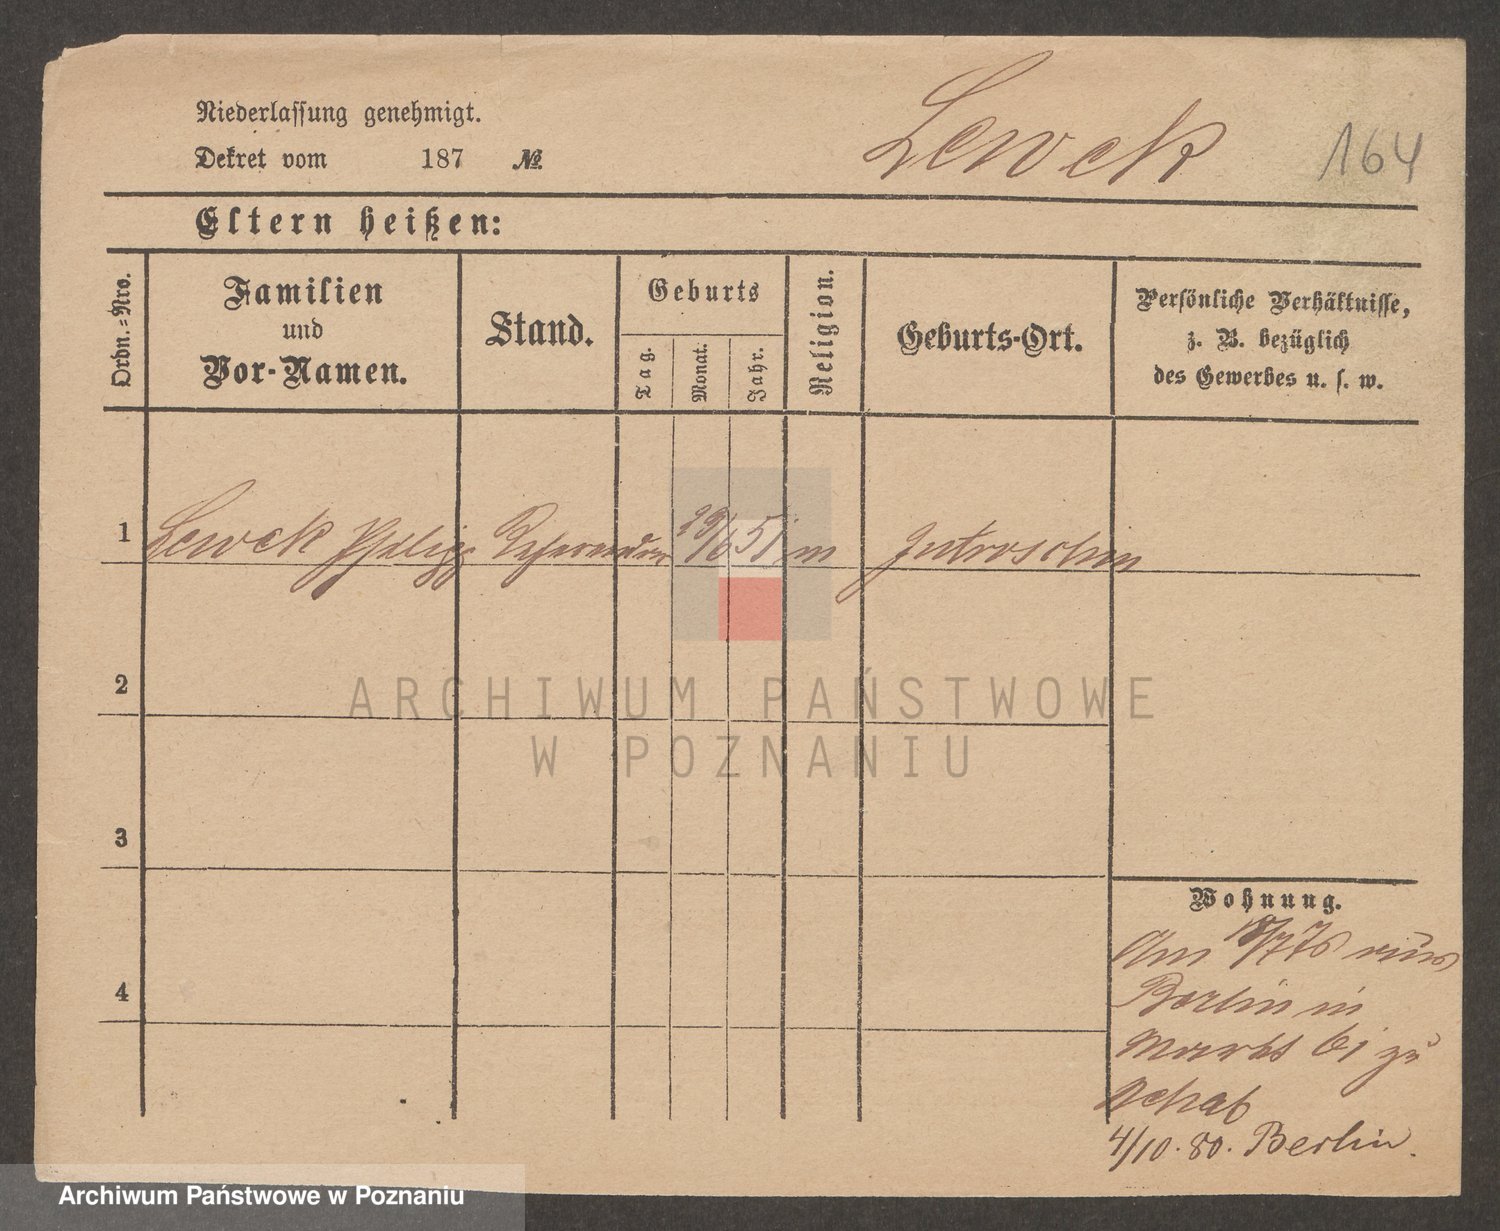 Niederlassung genehmigt.
Dekret vom 187 №.
Lewek
164
Eltern heißen:
Ordn.=Nro.
Familien
und
Vor-Namen.
Stand.
Geburts
Tag.
Monat.
Jahr.
Religion.
Geburts-Ort.
Persönliche Verhältnisse,
z. B. bezüglich
des Gewerbes u. s. w.
1 Lewek Philipp Referendar 29/6 51 m Jutroschin
2
3
4
Wohnung.
Am 18/7 76 aus
Berlin in
Markt 61 zu
4/10. 80. Berlin.
ARCHIWUM PAŃSTWOWE
W POZNANIU
Archiwum Państwowe w Poznaniu